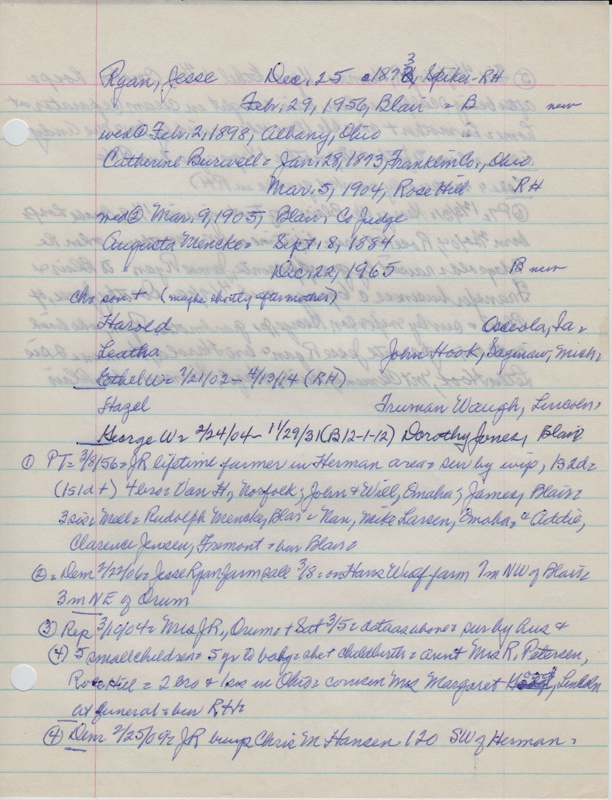 Ryan, Jesse Dec. 25 1873, Spiker-RH
Feb. 29, 1956, Blair = B new
wed ① Feb. 2, 1898, Albany, Ohio
Catherine Burwell = Jan. 28, 1873, Franklin Co., Ohio
Mar. 5, 1904, Rose Hill RH
wed ② Mar. 9, 1905, Blair, Co Judge
Augusta Mencke = Sept. 8, 1884
Dec. 22, 1965 B new
ch = son + (maybe shortly after mother)
Harold Osceola, Ia =
Leatha John Hook, Saginaw, Mich,
Ethel W = 7/21/02 - 4/13/14 (RH)
Hazel Truman Waugh, Lincoln =
George W = 2/24/04 - 11/29/31 (B 12-1-12) Dorothy Jones, Blair
① PT = 3/8/56 = JR lifetime farmer in Herman area = sur by wife, 1B 2d =
(1s 1d +) 4 bro = Van H, Norfolk; John & Will, Omaha; James, Blair =
3 sis = Mesd = Rudolph Mencke, Blair = Nan, Mike Larsen, Omaha, = Addie,
Clarence Jensen, Fremont = bur Blair =
② = Dem 2/22/06 = Jesse Ryan farm sale 3/8 = on Hans Wulf farm 7m NW of Blair =
3m NE of Orum
③ Rep 3/10/04 = Mrs JR, Orum, + Sat 3/5 = data as above = sur by hus &
④ 5 small children = 5 yr to baby = abt childbirth = aunt Mrs R. Petersen,
Rose Hill = 2 bro & 1 sis in Ohio = cousin Mrs Margaret Lincoln
at funeral = bur RH =
④ Dem 2/25/09 = JR buys Chris M Hansen 120 SW of Herman =